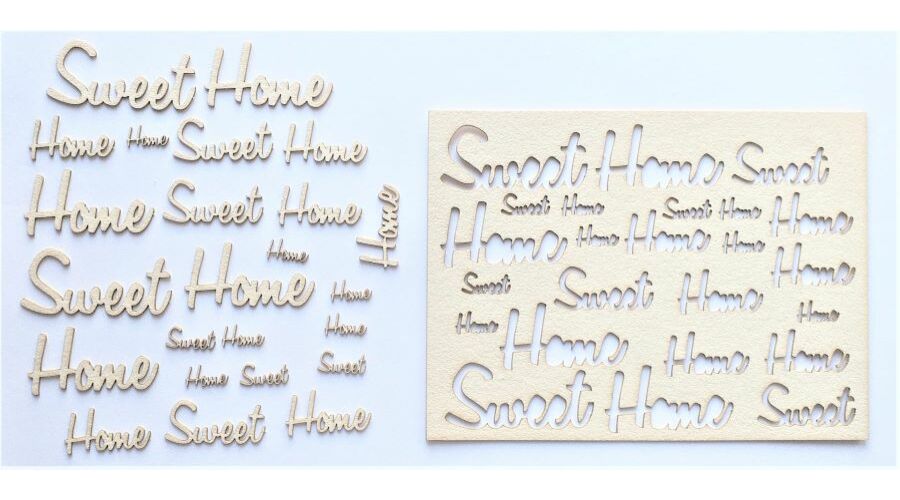 Sweet Home
Home Home Sweet Home
Home Sweet Home
Home
Home
Sweet Home Home
Home
Sweet Home
Home Home Sweet
Sweet
Home Sweet Home
Sweet Home Sweet
Sweet Home Sweet Home
Home Home Home Home Home
Home
Sweet Sweet Home
Home
Home Home Home Home
Sweet Home Sweet